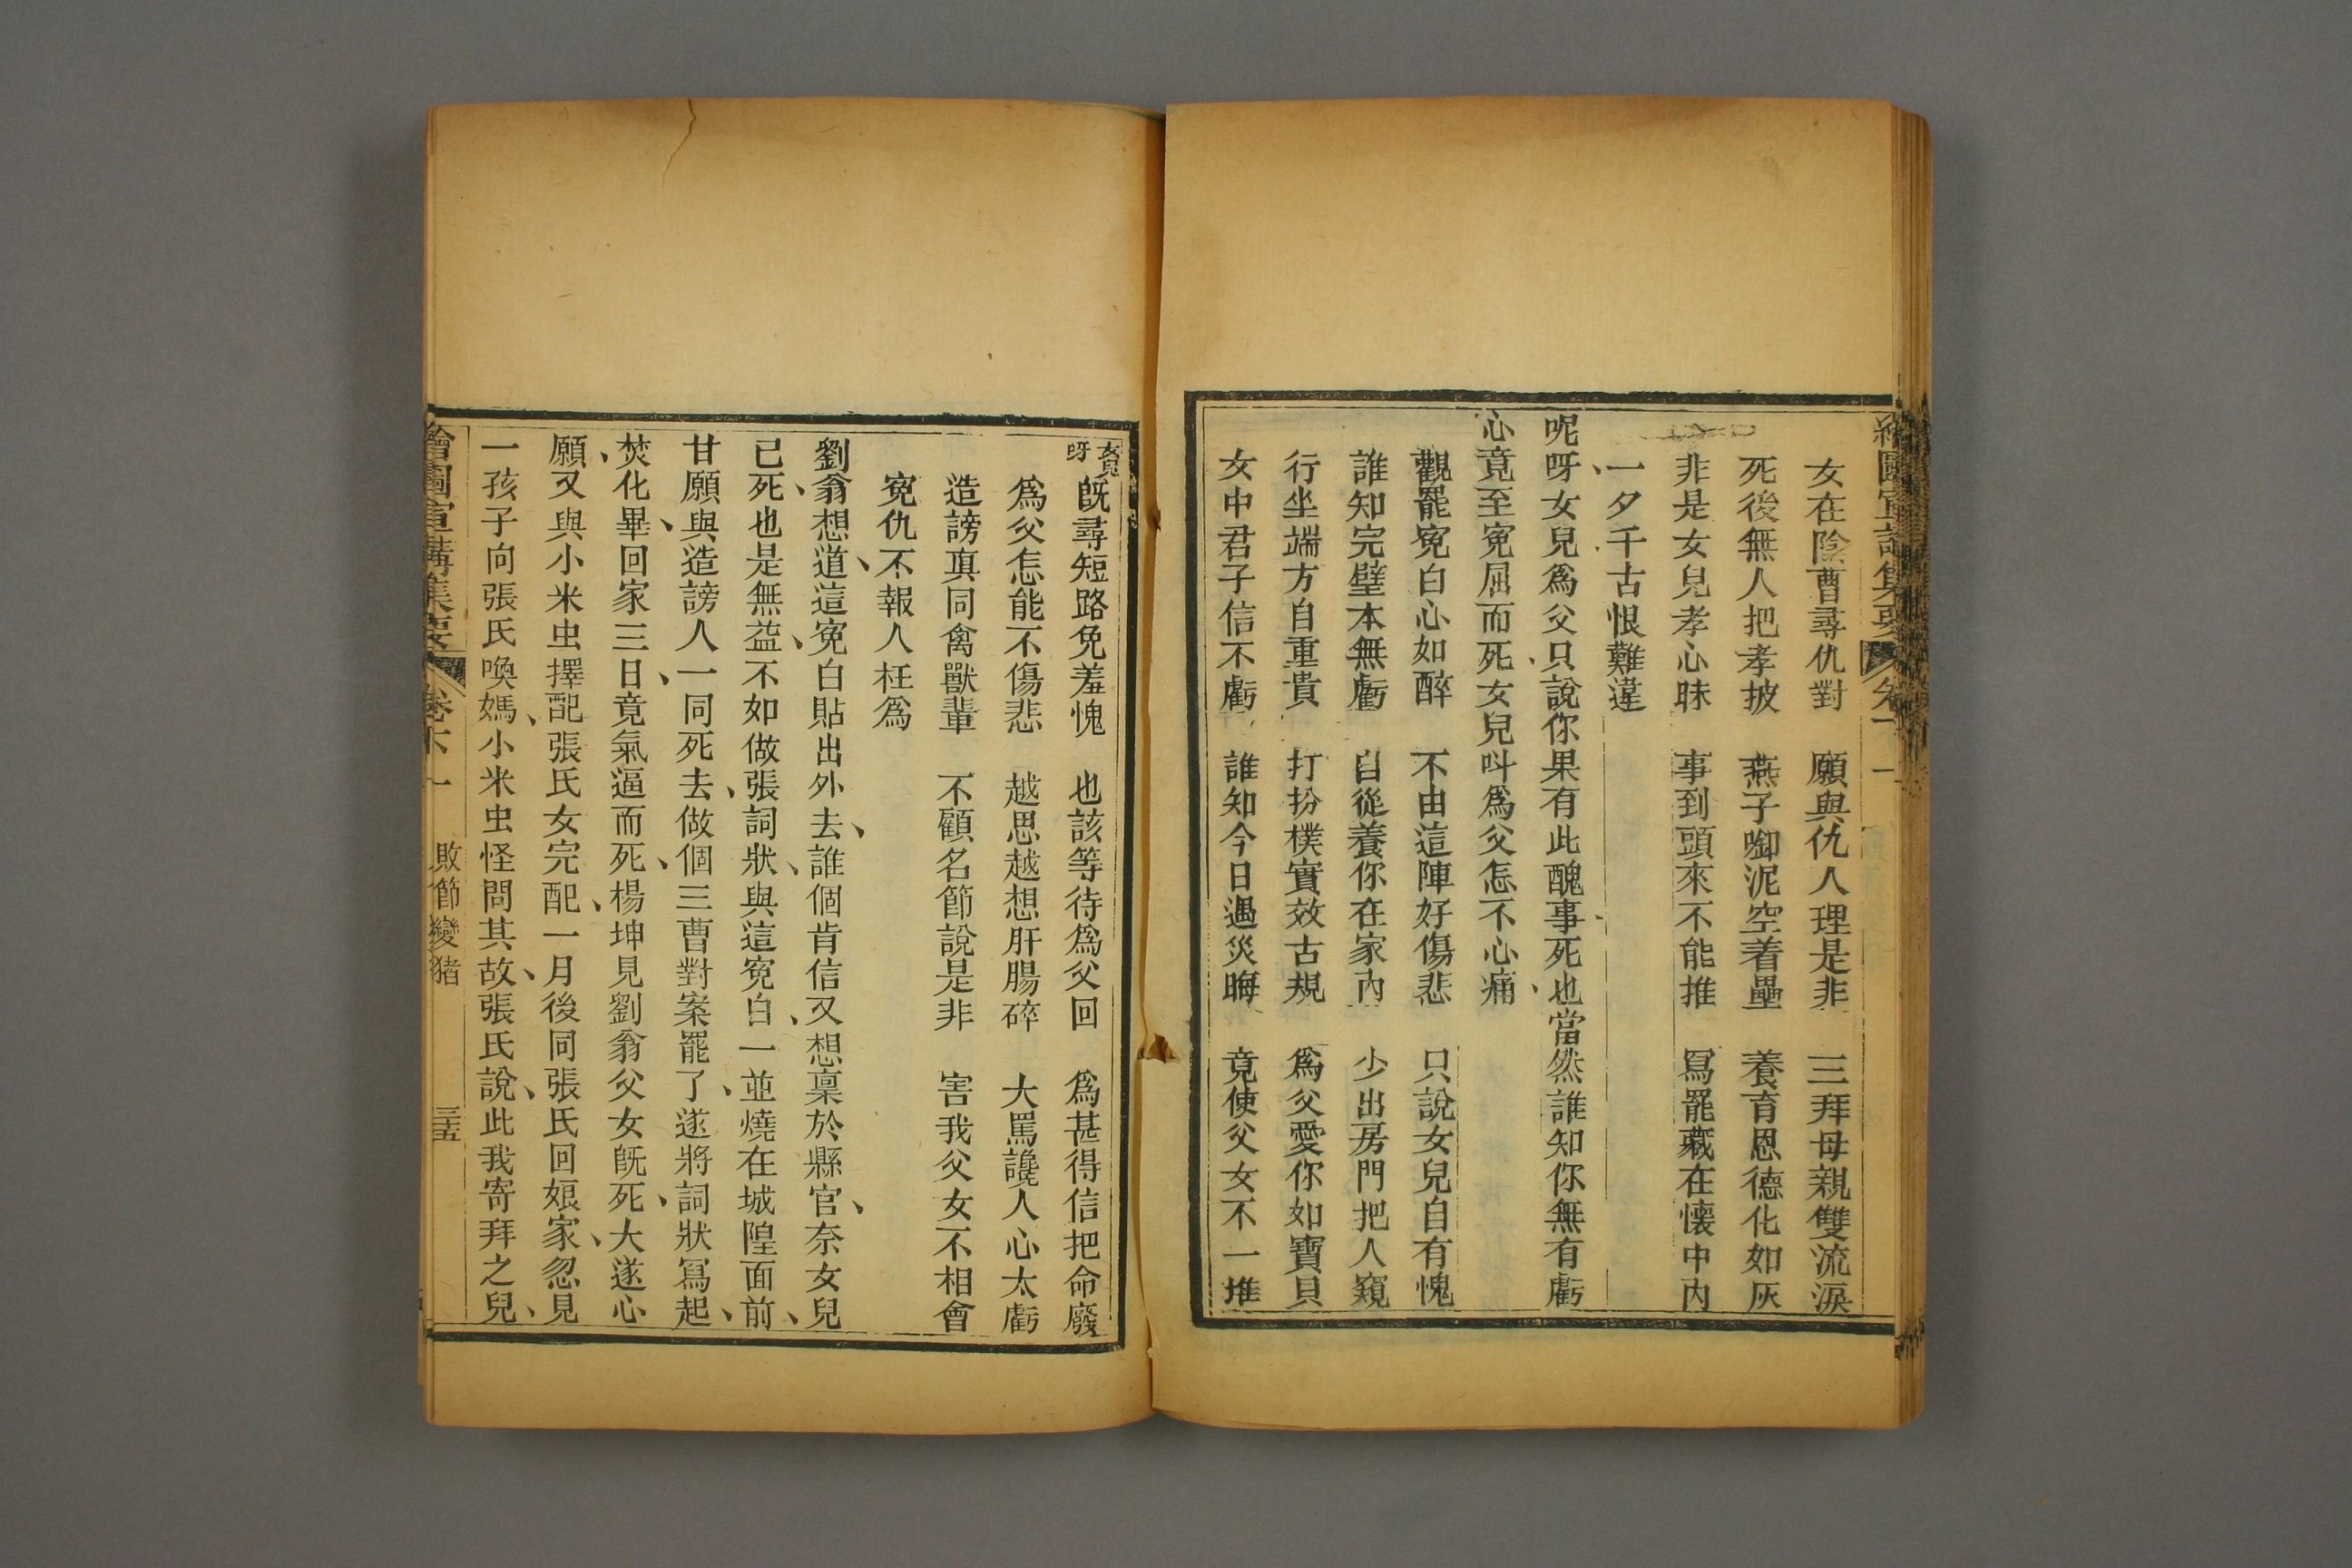 女在陰曹尋仇對　願與仇人理是非　三拜母親雙流淚
死後無人把孝披　燕子啣泥空着壘　養育恩德化如灰
非是女兒孝心昧　事到頭來不能推　寫罷藏在懷中內
一夕千古恨難違
呢呀女兒爲父只說你果有此醜事、死也當然誰知你無有虧
心竟至寃屈而死、女兒呌爲父怎不心痛、
觀罷寃白心如醉　不由這陣好傷悲　只說女兒自有愧
誰知完璧本無虧　自從養你在家內　少出房門把人窺
行坐端方自重貴　打扮樸實效古規　爲父愛你如寶貝
女中君子信不虧　誰知今日遇災晦　竟使父女不一推
女兒呀旣尋短路免羞愧　也該等待爲父回　爲甚得信把命廢
爲父怎能不傷悲　越思越想肝腸碎　大罵讒人心太虧
造謗眞同禽獸輩　不顧名節說是非　害我父女不相會
寃仇不報人枉爲
劉翁想道、這寃白貼出外去、誰個肯信又想稟於縣官、奈女兒
已死、也是無益、不如做張詞狀、與這寃白、一並燒在城隍面前、
甘願與造謗人一同死去、做個三曹對案罷了、遂將詞狀寫起、
焚化畢、回家三日、竟氣逼而死、楊坤見劉翁父女旣死、大遂心
願、又與小米虫擇配張氏女完配、一月後同張氏回娘家、忽見
一孩子向張氏喚媽、小米虫怪問其故、張氏說、此我寄拜之兒、
繪圖宣講集要　卷下一　敗節變猪　三五